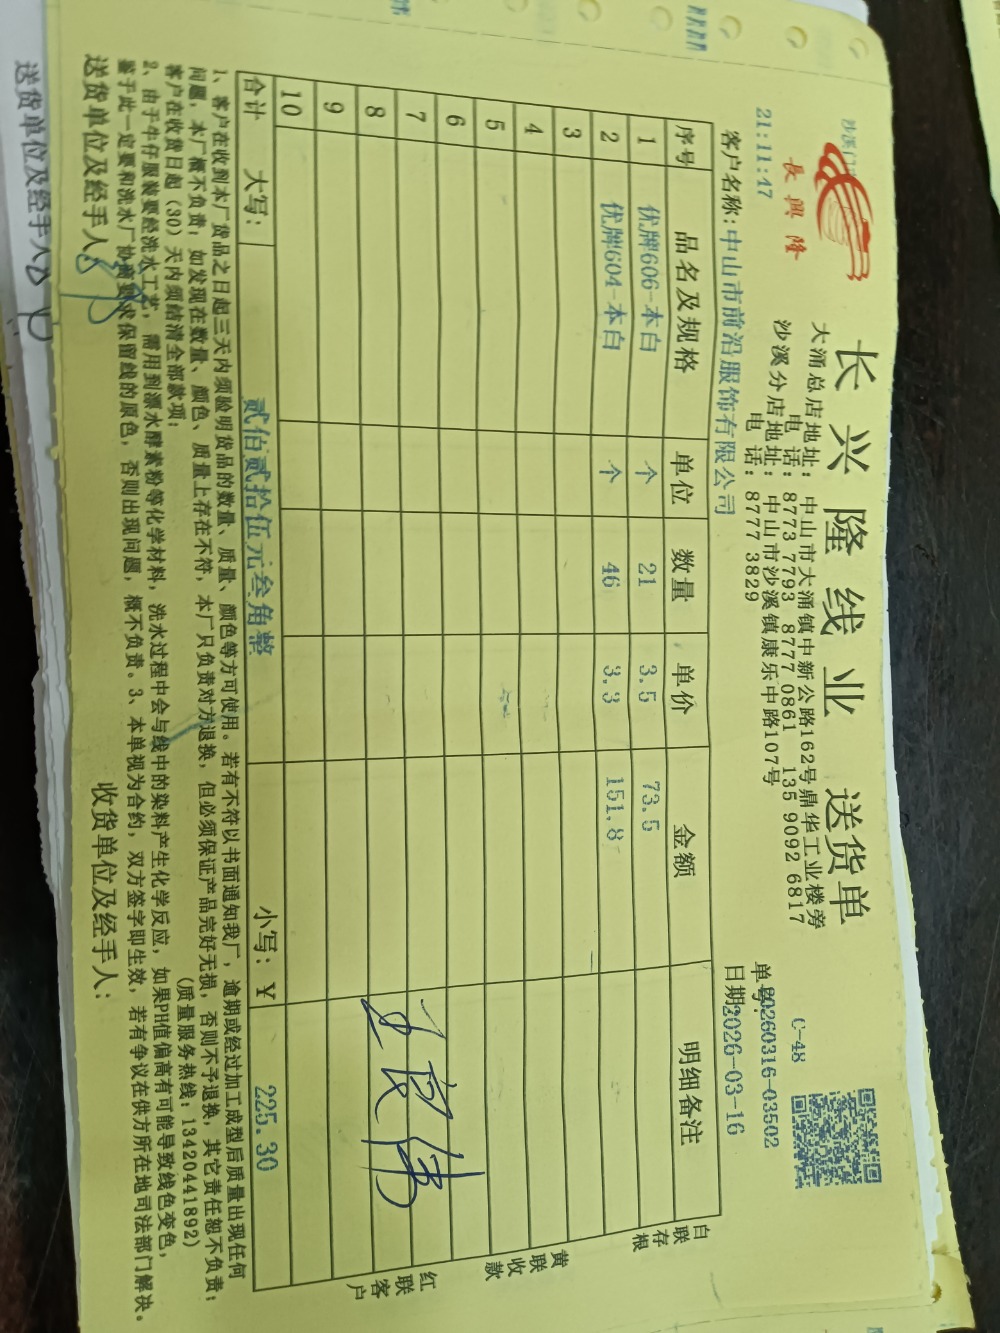 長興隆
21:11:47
长兴隆线业 送货单
大涌总店地址：中山市大涌镇中新公路162号鼎华工业楼旁
电 话：8773 7793 8777 0861 135 9092 6817
沙溪分店地址：中山市沙溪镇康乐中路107号
电 话：8777 3829
C-48
单号：20260316-03502
客户名称：中山市前沿服饰有限公司
日期：2026-03-16
序号 品名及规格 单位 数量 单价 金额 明细备注
1 优牌606-本白 个 21 3.5 73.5
2 优牌604-本白 个 46 3.3 151.8
3
4
5
6
7
8
9
10
合计 大写： 贰佰贰拾伍元叁角整 小写：¥ 225.30
白联存根
黄联收款
红联客户
1、客户在收到本厂货品之日起三天内须验明货品的数量、质量、颜色等方可使用。若有不符以书面通知我厂，逾期或经过加工成型后质量出现任何
问题，本厂概不负责；如发现在数量、颜色、质量上存在不符，本厂只负责对方退换，但必须保证产品完好无损，否则不予退换，其它责任恕不负责；
客户在收货日起（30）天内须结清全部款项； （质量服务热线：13420441892）
2、由于牛仔服装要经洗水工艺，需用到漂水酵素粉等化学材料，洗水过程中会与线中的染料产生化学反应，如果PH值偏高有可能导致线色变色，
鉴于此一定要和洗水厂协商要求保留线的原色，否则出现问题，概不负责。3、本单视为合约，双方签字即生效，若有争议在供方所在地司法部门解决。
送货单位及经手人： 收货单位及经手人：
送货单位及经手人